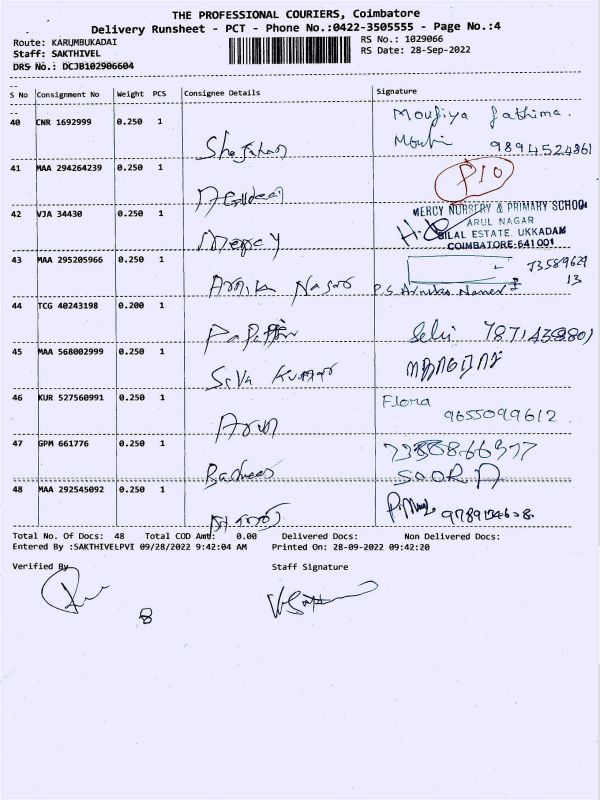 THE PROFESSIONAL COURIERS, Coimbatore
Delivery Runsheet - PCT - Phone No.:0422-3505555 - Page No.:4
Route: KARUMBUKADAI RS No.: 1029066
Staff: SAKTHIVEL RS Date: 28-Sep-2022
DRS No.: DCJB102906604
S No Consignment No Weight PCS Consignee Details Signature
40 CNR 1692999 0.250 1 Moufiya fathima.
Shajahan 9894524861
41 MAA 294264239 0.250 1 P10
42 VJA 34430 0.250 1 MERCY NURSERY & PRIMARY SCHOOL
ARUL NAGAR
BILAL ESTATE, UKKADAM
COIMBATORE-641 001
Mercy
43 MAA 295205966 0.250 1
44 TCG 40243198 0.200 1
Selvi
45 MAA 568002999 0.250 1
Siva Kumar
46 KUR 527560991 0.250 1 Flora
Arun 9655099612
47 GPM 661776 0.250 1
Basheer SOORA
48 MAA 292545092 0.250 1
Total No. Of Docs: 48 Total COD Amt: 0.00 Delivered Docs: Non Delivered Docs:
Entered By :SAKTHIVELPVI 09/28/2022 9:42:04 AM Printed On: 28-09-2022 09:42:20
Verified By Staff Signature
8